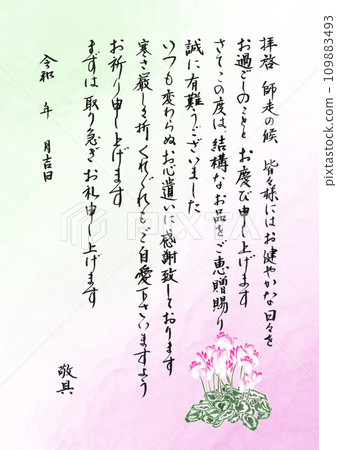 拝啓 師走の候 皆々様にはお健やかな日々を
お過ごしのことと お慶び申し上げます
さてこの度は、結構なお品をご恵贈賜り
誠に有難うございました
いつも変わらぬお心遣いに感謝致しております
寒さ厳しき折 くれぐれもご自愛下さいますよう
お祈り申し上げます
まずは 取り急ぎ お礼申し上げます
敬具
令和 年 月吉日
PIXTA
109883493